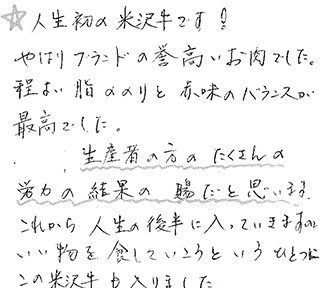 ☆人生初の米沢牛です!
やはりブランドの誉高いお肉でした。
程よい脂ののりと赤味のバランスが
最高でした。
生産者の方のたくさんの
労力の結果の賜だと思います。
これから人生の後半に入っていきますの
いい物を食していこうというひとつに
この米沢牛も入りました